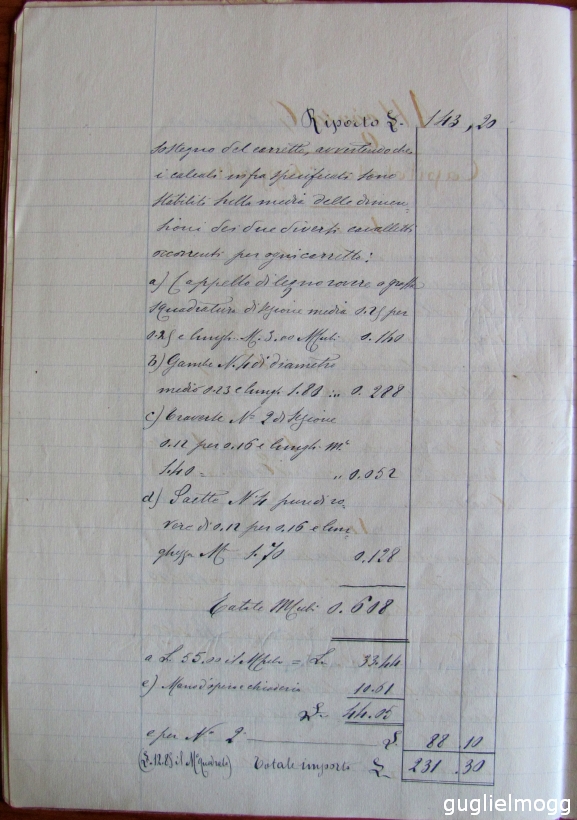 Riporto £. 143,20
sostegno del carretto, avvertendo che
i calcoli infra specificati sono
stabiliti sulla media delle dimen-
sioni dei due diversi cavalletti
occorrenti per ogni carretto:
a) Cappello di legno rovere a grossa
squadratura di sezione media 0.25 per
0.25 e lungh. M. 3.00 Mcubi 0.140
b) Gambe N. 4 di diametro
medio 0.23 e lungh. 1.80 " 0.288
c) Traverse N.º 2 di sezione
0.12 per 0.16 e lungh. M.i
1.40 = " 0.052
d) Saette N. 4 pure di ro-
vere di 0.12 per 0.16 e lun-
ghezza M. 1.70 0.128
Totale Mcubi 0.608
a L. 55.00 il Mcubo = L. 33.44
e) Mano d'opera e chioderia 10.61
£. 44.05
e per N.º 2 £. 88.10
(£. 12.85 il M.º quadrato) Totale importo £. 231.30
guglielmogg